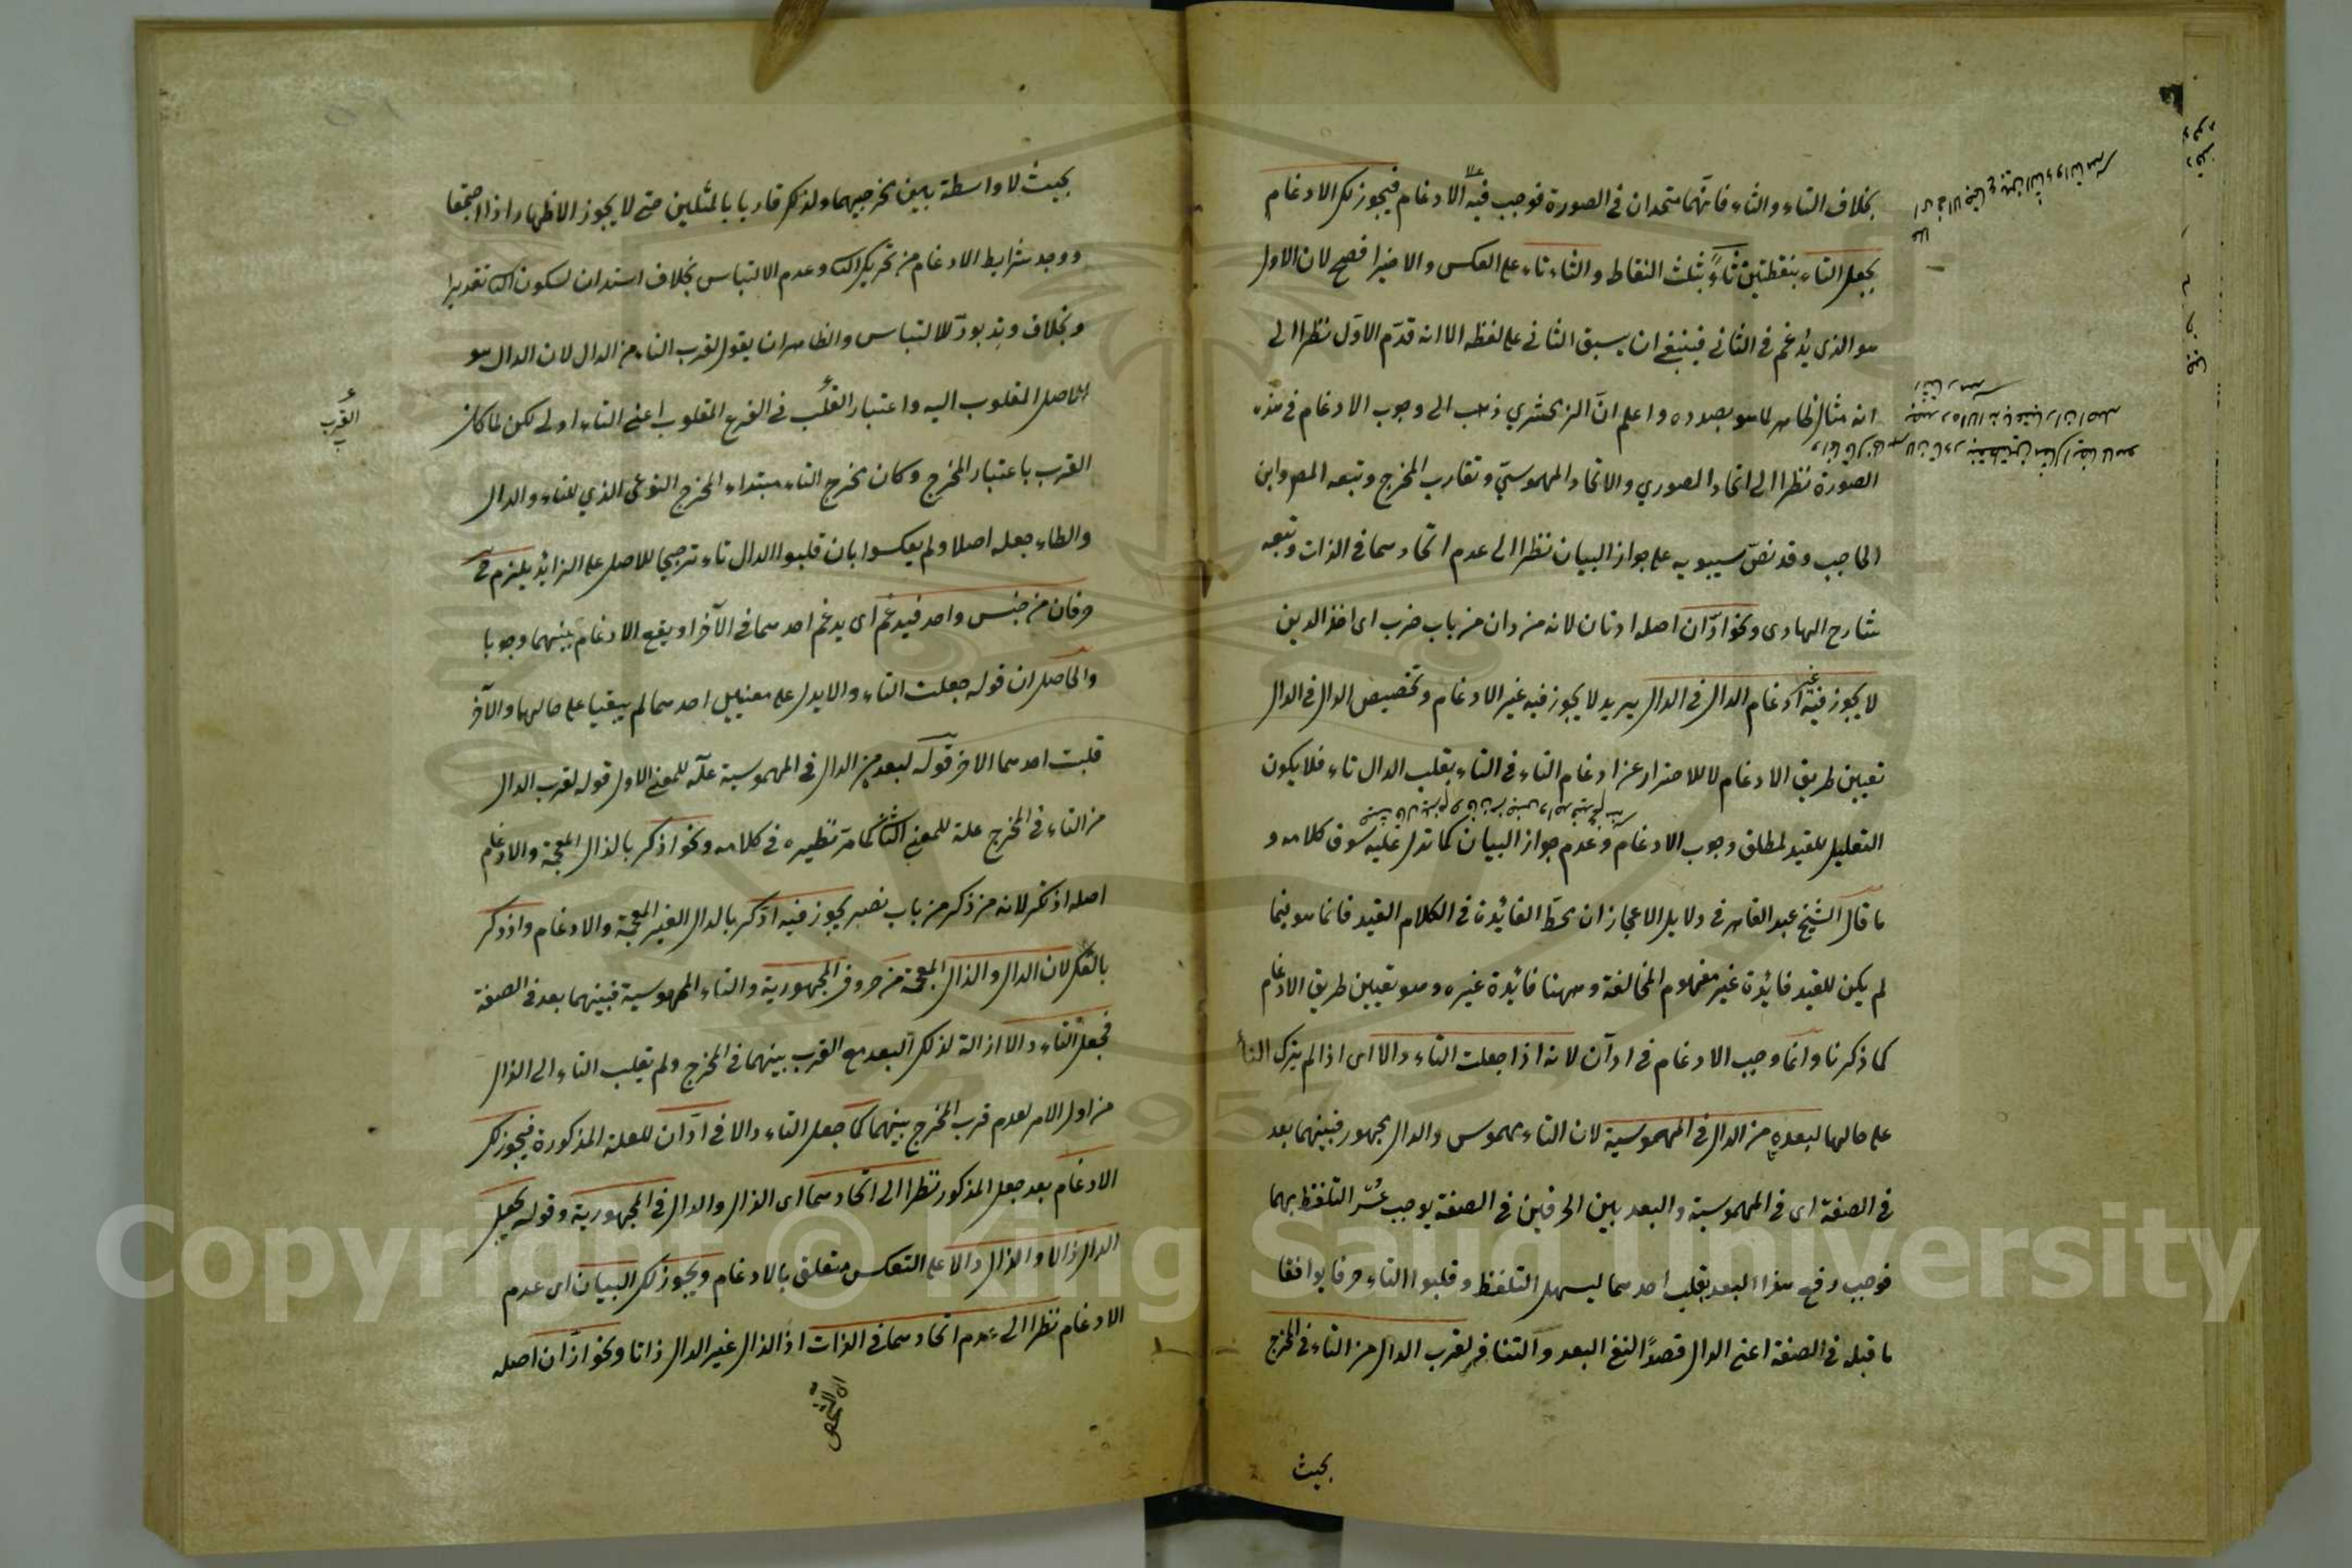 بخلاف التاء والثاء فانهما متحدان فى الصورة فوجب فيه الادغام فيجوز لك الادغام
بجعل التاء بنقطتين ثاءً بثلث النقاط والثاء تاء على العكس والاخير افصح لان الاول
هو الذى يدغم فى الثانى فينبغى ان يسبق الثانى على لفظه الا انه قدّم الاوّل نظرا الى
انه مثال ظاهر لما هو بصدده واعلم انّ الزمخشري ذهب الى وجوب الادغام فى هذه
الصورة نظرا الى اتحاد الصوري والاتحاد المهموسيّ وتقارب المخرج وتبعه المص وابن
الحاجب وقد نصّ سيبويه على جواز البيان نظرا الى عدم اتحادهما فى الذات وتبعه
شارح الهادى ونحو ادّان اصله ادتان لانه من دان من باب ضرب اى اخذ الدين
لا يجوز فيه غير ادغام الدال فى الدال يريد لا يجوز فيه غير الادغام وتخصيص الدال فى الدال
تعيين طريق الادغام لا للاحتراز عن ادغام التاء فى التاء بقلب الدال تاء فلا يكون
التعليل للقيد لمطلق وجوب الادغام وعدم جواز البيان كما تدل عليه سوق كلامه و
ما قال الشيخ عبد القاهر فى دلايل الاعجاز ان محطّ الفائدة فى الكلام القيد فانما هو فيما
لم يكن للقيد فائدة غير مفهوم المخالفة وههنا فائدة غيره وهو تعيين طريق الادغام
كما ذكرنا وانما وجب الادغام فى ادّان لانه اذا جعلت التاء دالا اى اذا لم يترك التاء
على حالها لبعده من الدال فى المهموسية لان التاء مهموس والدال مجهور فبينهما بعد
فى الصفة اى فى المهموسية والبعد بين الحرفين فى الصفة يوجب عُسْر التلفظ بهما
فوجب رفع هذا البعد بقلب احدهما ليسهل التلفظ وقلبوا التاء حرفا يوافقا
ما قبله فى الصفة اعنى الدال قصدًا لنفى البعد والتنافر لقرب الدال من التاء فى المخرج
بحيث
بحيث لا واسطة بين مخرجيهما ولذلك قاربا بالمثلين حتى لا يجوز الاظهار اذا اجتمعا
ووجد شرايط الادغام من تحريك الثا وعدم الالتباس بخلاف استدان لسكون الثا تقديرا
وبخلاف وتد يودّ للالتباس والظاهر ان يقول لقرب التاء من الدال لان الدال هو
الاصل المقلوب اليه واعتبار القلب فى الفرع المقلوب اعنى التاء اولى لكن لما كان
القُرب
القرب باعتبار المخرج وكان مخرج التاء مبتداء المخرج النوعى الذي للتاء والدال
والطاء جعله اصلا ولم يعكسوا بان قلبوا الدال تاء ترجيحا للاصل على الزايد يلزم ح
حرفان من جنس واحد فيدغم اى يدغم احدهما فى الآخر او يقع الادغام بينهما وجوبا
والحاصل ان قوله جعلت التاء دالا يدل على معنيين احدهما لم يبقيا على حالها والآخر
قلبت احدهما الاخر قوله لبعده من الدال فى المهموسية علة للمعنى الاول قوله لقرب الدال
من التاء فى المخرج علة للمعنى الثانى كما مرّ نظيره فى كلامه ونحو اذكر بالذال المعجمة والادغام
اصله اذتكر لانه من ذكر من باب نصر يجوز فيه ادّكر بالدال الغير المعجمة والادغام واذدكر
بالفك لان الدال والذال المعجمة من حروف المجهورية والتاء المهموسية فبينهما بعد فى الصفة
فجعل التاء دالا ازالة لذلك البعد مع القرب بينهما فى المخرج ولم يقلب التاء الى الذال
من اول الامر لعدم قرب المخرج بينهما كما جعل التاء دالا فى ادّان للعلة المذكورة فيجوز لك
الادغام بعد جعل المذكور نظرا الى اتحادهما اى الذال والدال فى المجهورية وقوله بجعل
الدال ذالا والذال دالا على التعكس متعلق بالادغام ويجوز لك البيان اى عدم
الادغام نظرا الى عدم اتحادهما فى الذات اذ الذال غير الدال ذاتا ونحو ازّان اصله
Copyright © King Saud University
1957